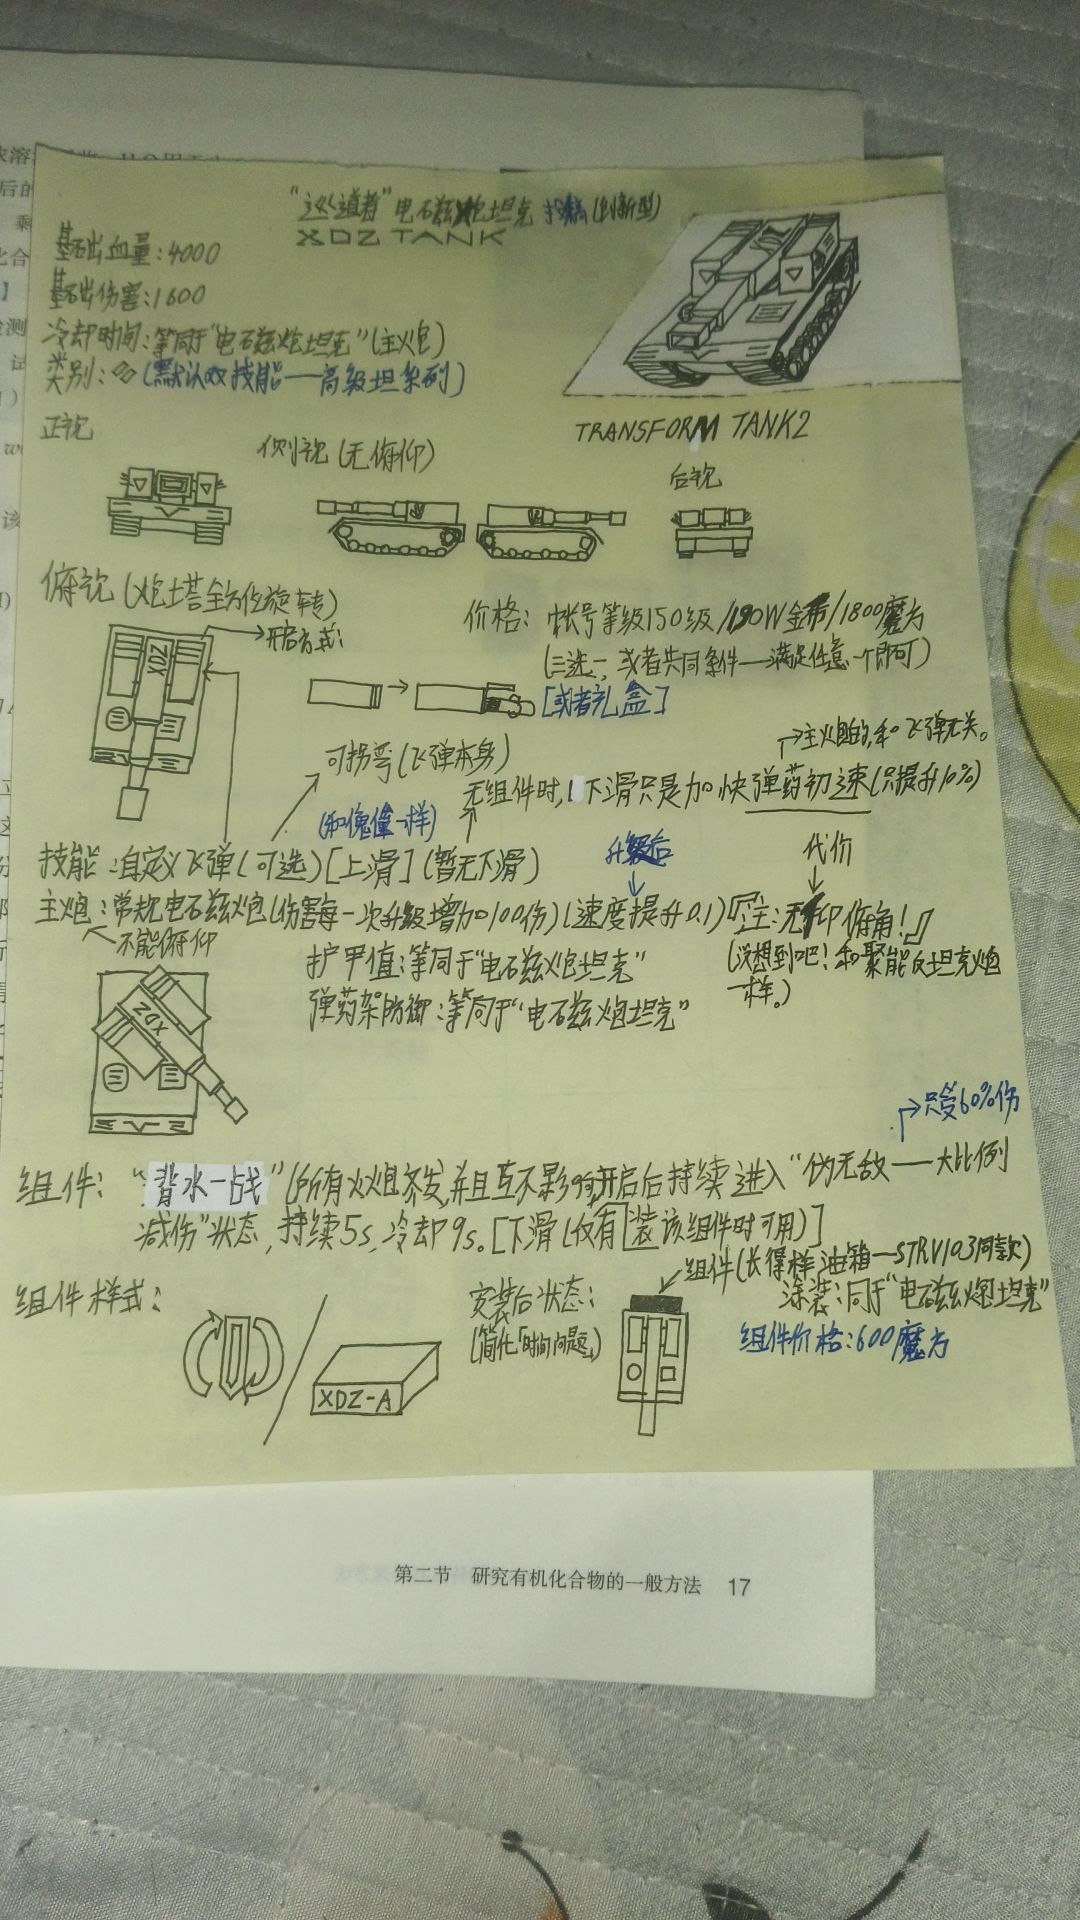 电磁炮坦克投稿(创新型)
XDZ TANK
基础血量:4000
基础伤害:1600
冷却时间:等同于“电磁炮坦克”(主炮)
类别:(默认双技能——高级坦系列)
TRANSFORM TANK2
正视
侧视(无俯仰)
后视
俯视(炮塔全方位旋转)
开启方式:
价格:帐号等级150级/190W金币/1800魔方
(三选一,或者共同条件——满足任意一个即可)
[或者礼盒]
XDZ
可拐弯(飞弹本身)
(和傀儡一样)
主炮的,和飞弹无关。
无组件时,下滑只是加快弹药初速(只提升10%)
技能:自定义飞弹(可选)[上滑](暂无下滑)
升级后
代价
主炮:常规电磁炮(伤害每一次升级增加100伤)(速度提升0.1)『注:无仰俯角!』
不能俯仰
(没想到吧!和聚能反坦克炮一样。)
护甲值:等同于“电磁炮坦克”
弹药架防御:等同于“电磁炮坦克”
XDZ
只受60%伤
组件:“背水一战”(所有火炮齐发,并且互不影响,开启后持续进入“伪无敌——大比例
减伤”状态,持续5s,冷却9s。[下滑(仅有装该组件时可用)]
组件样式:
XDZ-A
安装后状态:
(简化「时间问题」)
组件(长得样油箱—STRV103同款)
涂装:同于“电磁炮坦克”
组件价格:600魔方
第二节 研究有机化合物的一般方法 17